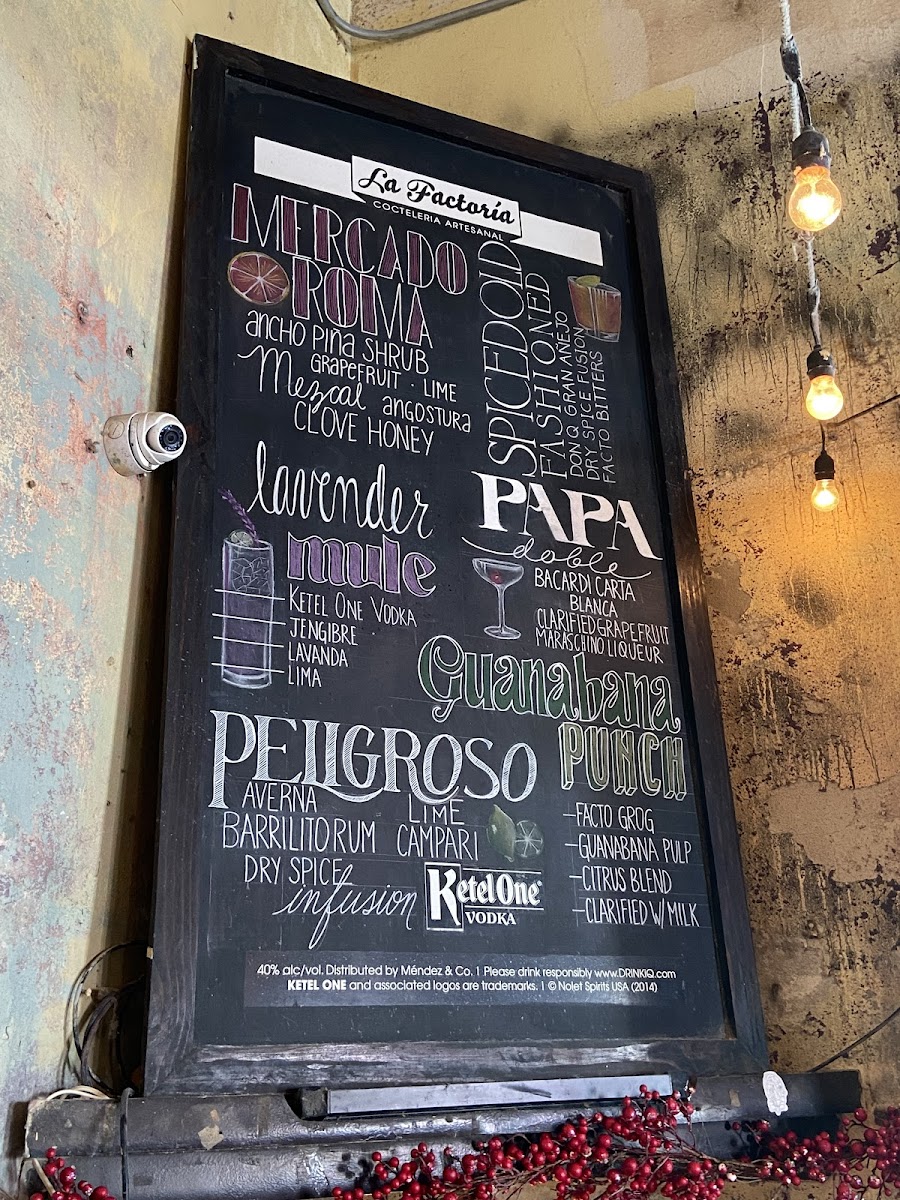 La Factoría
COCTELERIA ARTESANAL
MERCADO
ROMA
ancho PIña SHRUB
GRAPEFRUIT · LIME
Mezcal angostura
CLOVE HONEY
SPICED OLD
FASHIONED
DON Q GRAN AÑEJO
DRY SPICE FUSION
FACTO BITTERS
lavender
mule
KETEL ONE VODKA
JENGIBRE
LAVANDA
LIMA
PAPA
doble
BACARDI CARTA
BLANCA
CLARIFIED GRAPEFRUIT
MARASCHINO LIQUEUR
Guanabana
PUNCH
FACTO GROG
GUANABANA PULP
CITRUS BLEND
CLARIFIED W/ MILK
PELIGROSO
AVERNA LIME
BARRILITO RUM CAMPARI
DRY SPICE
infusion
Ketel One
VODKA
40% alc/vol. Distributed by Méndez & Co. | Please drink responsibly www.DRINKiQ.com
KETEL ONE and associated logos are trademarks. | © Nolet Spirits USA (2014)